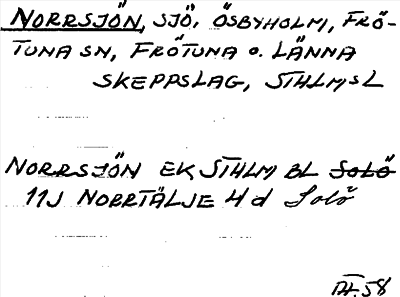 NORRSJÖN, SJÖ, ÖSBYHOLM, FRÖ-
TUNA SN, FRÖTUNA O. LÄNNA
SKEPPSLAG, STHLMSL
NORRSJÖN EK STHLM BL SOLÖ
11J NORRTÄLJE 4d Solö